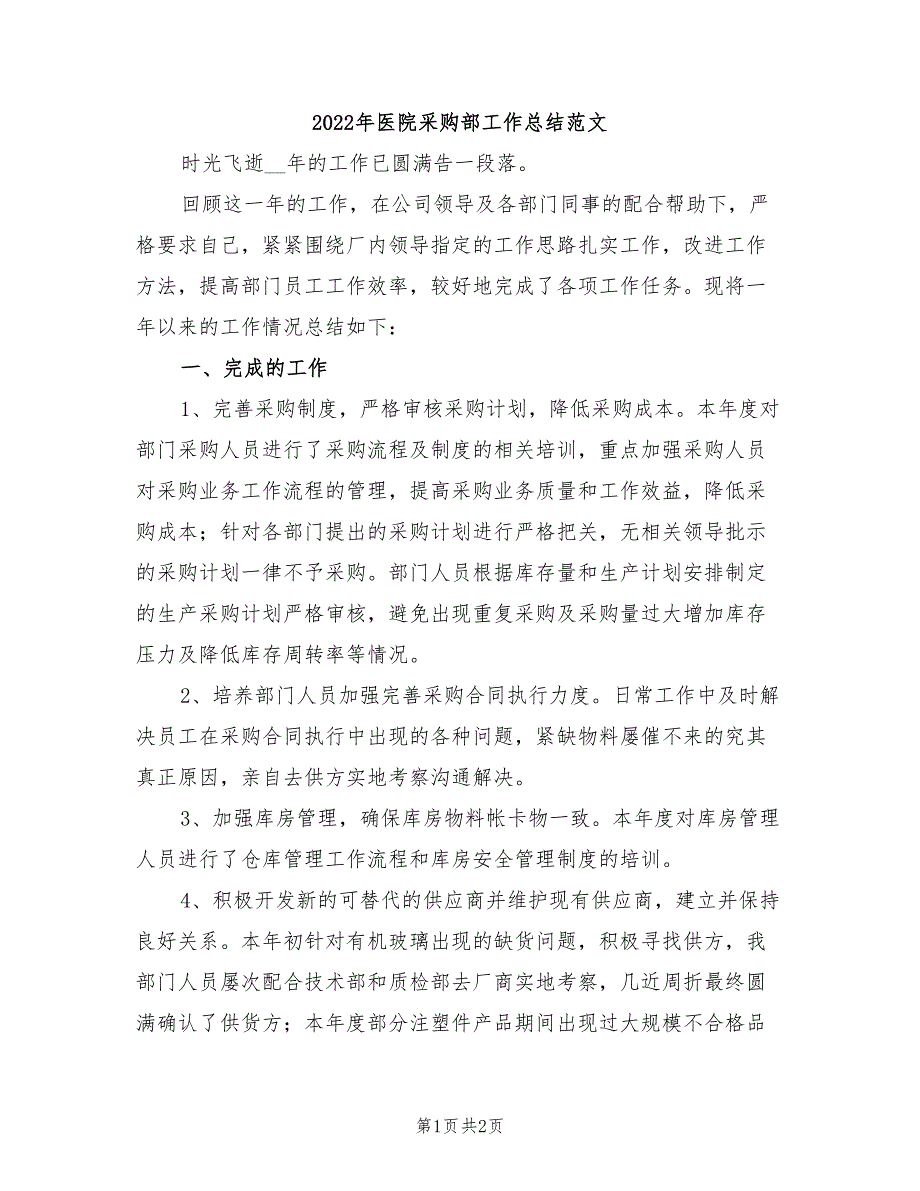 2022年医院采购部工作总结范文
时光飞逝__年的工作已圆满告一段落。
回顾这一年的工作，在公司领导及各部门同事的配合帮助下，严
格要求自己，紧紧围绕厂内领导指定的工作思路扎实工作，改进工作
方法，提高部门员工工作效率，较好地完成了各项工作任务。现将一
年以来的工作情况总结如下：
一、完成的工作
1、完善采购制度，严格审核采购计划，降低采购成本。本年度对
部门采购人员进行了采购流程及制度的相关培训，重点加强采购人员
对采购业务工作流程的管理，提高采购业务质量和工作效益，降低采
购成本；针对各部门提出的采购计划进行严格把关，无相关领导批示
的采购计划一律不予采购。部门人员根据库存量和生产计划安排制定
的生产采购计划严格审核，避免出现重复采购及采购量过大增加库存
压力及降低库存周转率等情况。
2、培养部门人员加强完善采购合同执行力度。日常工作中及时解
决员工在采购合同执行中出现的各种问题，紧缺物料屡催不来的究其
真正原因，亲自去供方实地考察沟通解决。
3、加强库房管理，确保库房物料帐卡物一致。本年度对库房管理
人员进行了仓库管理工作流程和库房安全管理制度的培训。
4、积极开发新的可替代的供应商并维护现有供应商，建立并保持
良好关系。本年初针对有机玻璃出现的缺货问题，积极寻找供方，我
部门人员屡次配合技术部和质检部去厂商实地考察，几近周折最终圆
满确认了供货方；本年度部分注塑件产品期间出现过大规模不合格品
第1页共2页